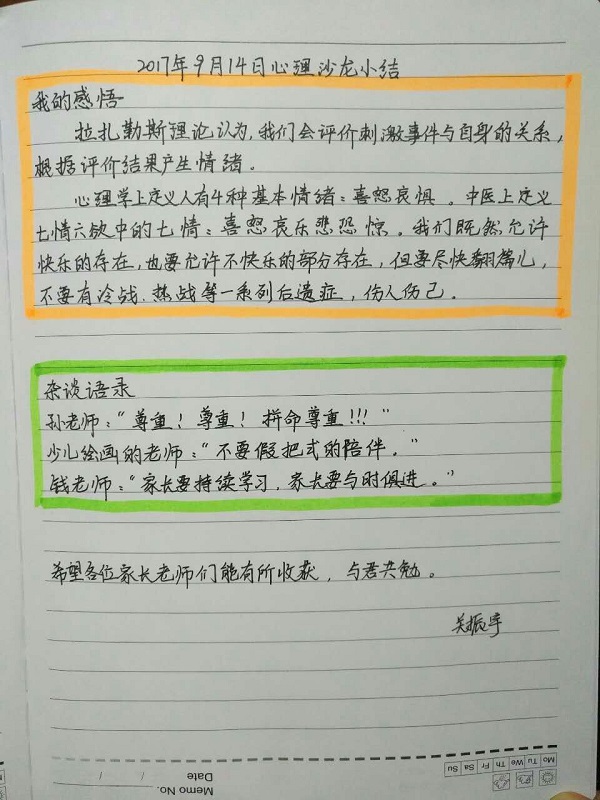 2017年9月14日心理沙龙小结
我的感悟
拉扎勒斯理论认为,我们会评价刺激事件与自身的关系,
根据评价结果产生情绪。
心理学上定义人有4种基本情绪:喜怒哀惧。中医上定义
七情六欲中的七情:喜怒哀乐悲恐惊。我们既然允许
快乐的存在,也要允许不快乐的部分存在,但要尽快翻篇儿,
不要有冷战、热战等一系列后遗症,伤人伤己。
杂谈语录
孙老师:“尊重!尊重!拼命尊重!!!”
少儿绘画的老师:“不要假把式的陪伴。”
钱老师:“家长要持续学习,家长要与时俱进。”
希望各位家长老师们能有所收获,与君共勉。
关振宇
Mo Tu We Th Fr Sa Su
Memo No.
Date / /